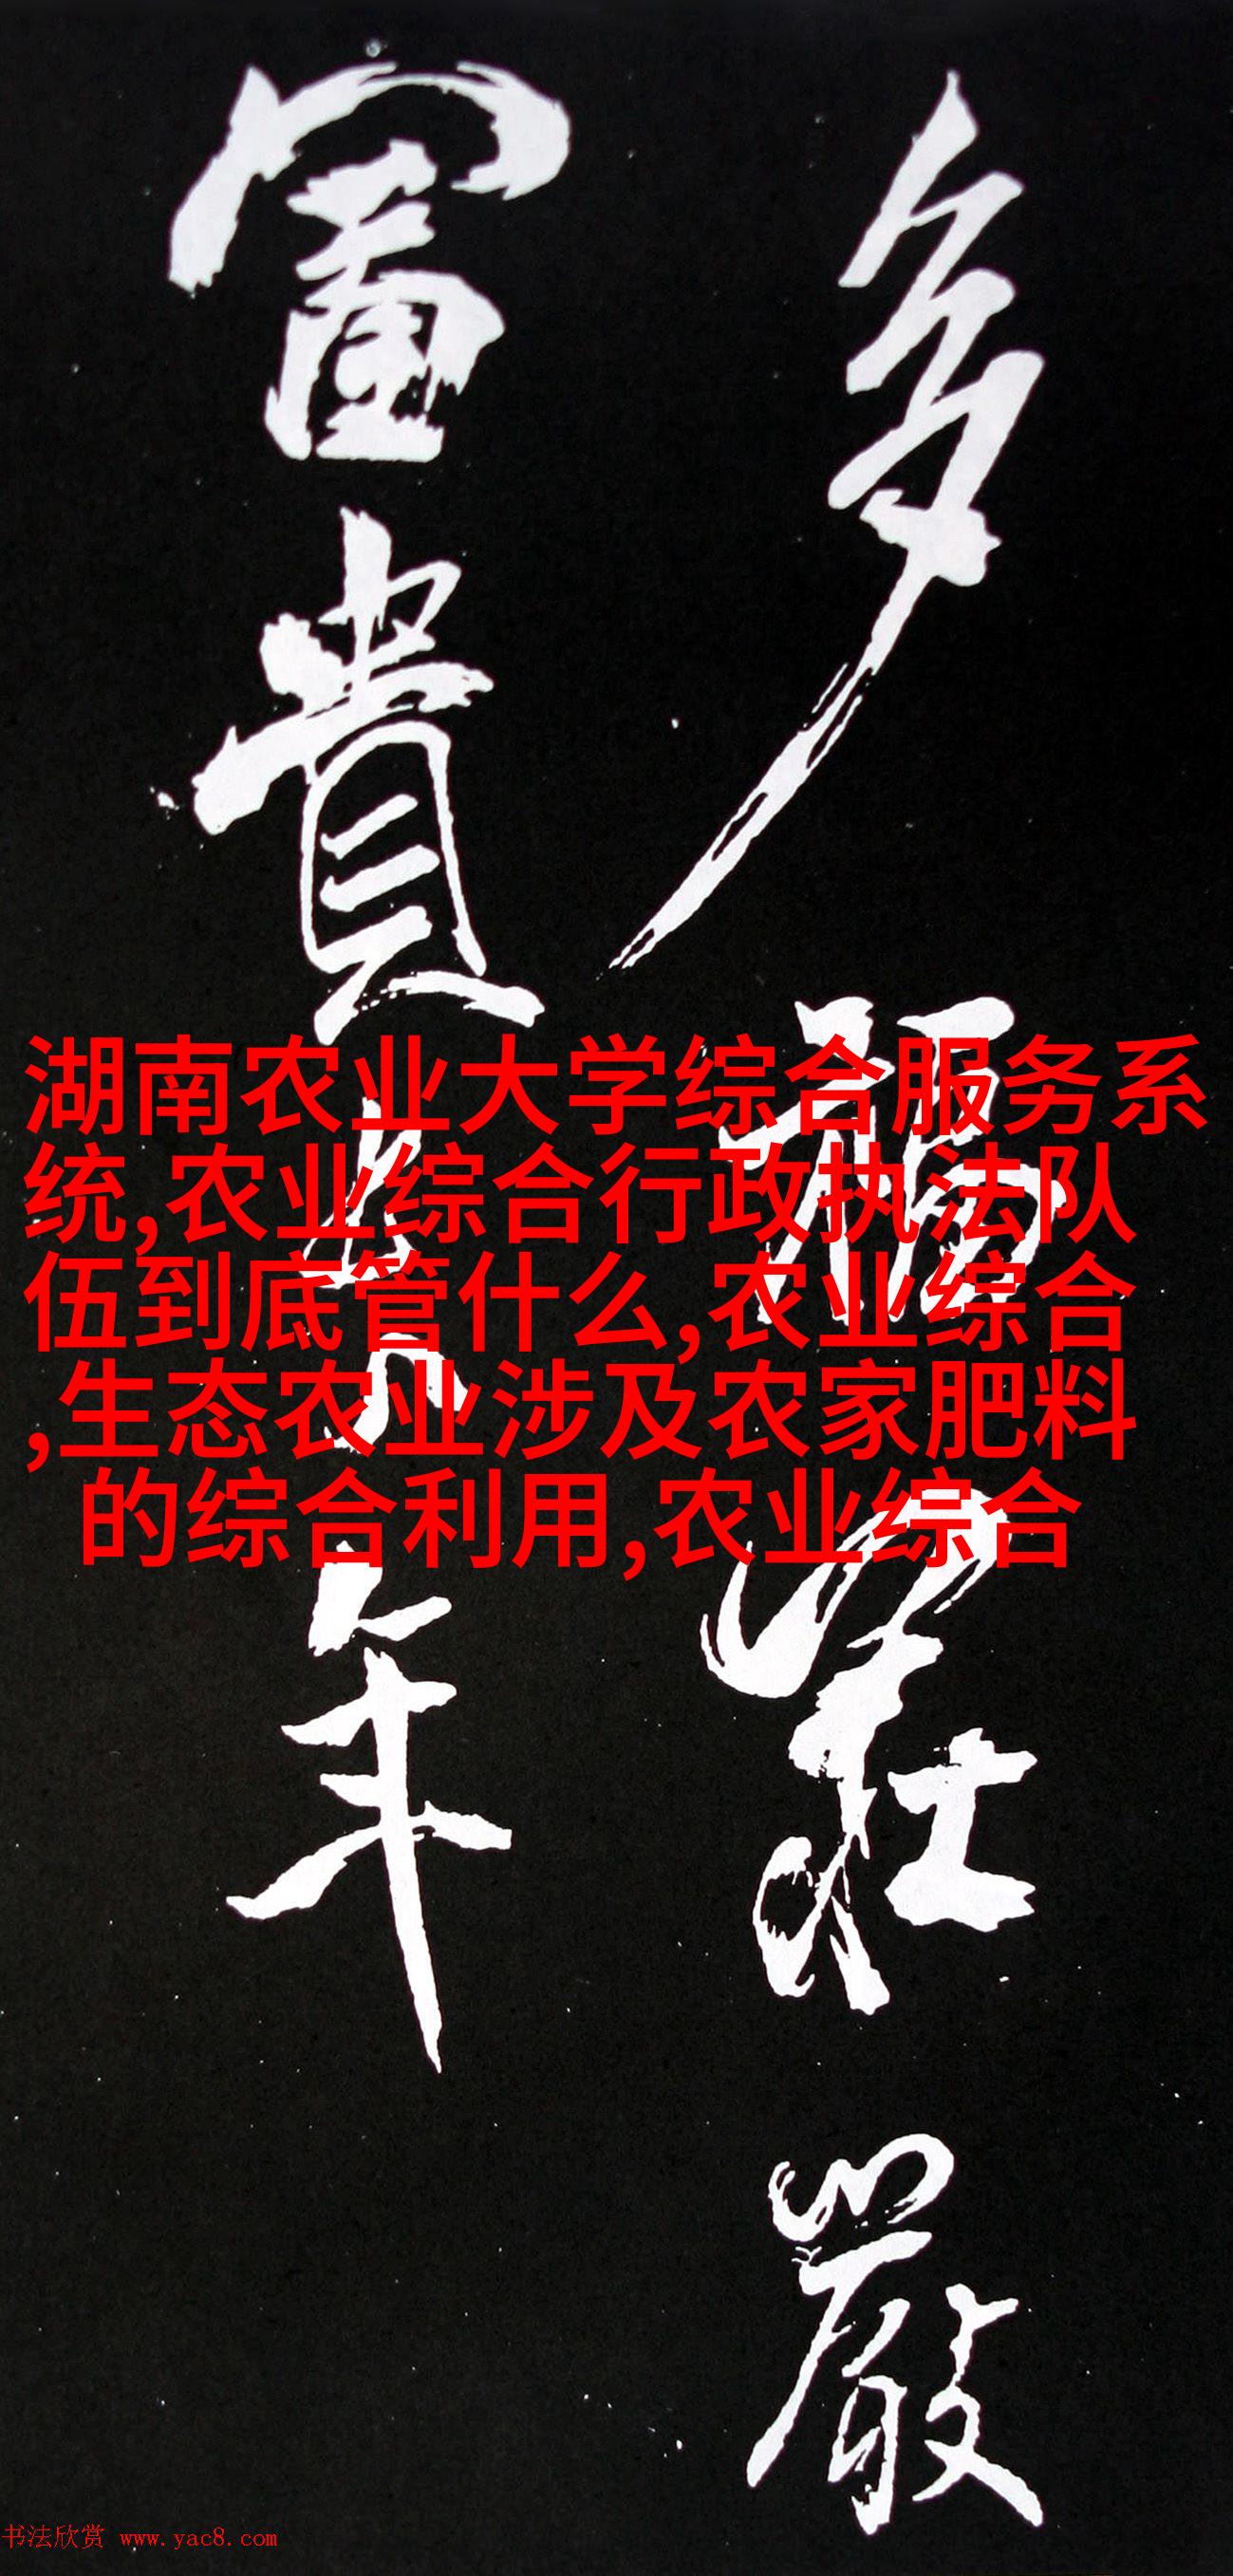 多福莊嚴
富貴年
湖南农业大学综合服务系
统,农业综合行政执法队
伍到底管什么,农业综合
,生态农业涉及农家肥料
的综合利用,农业综合
书法欣赏 www.yac8.com